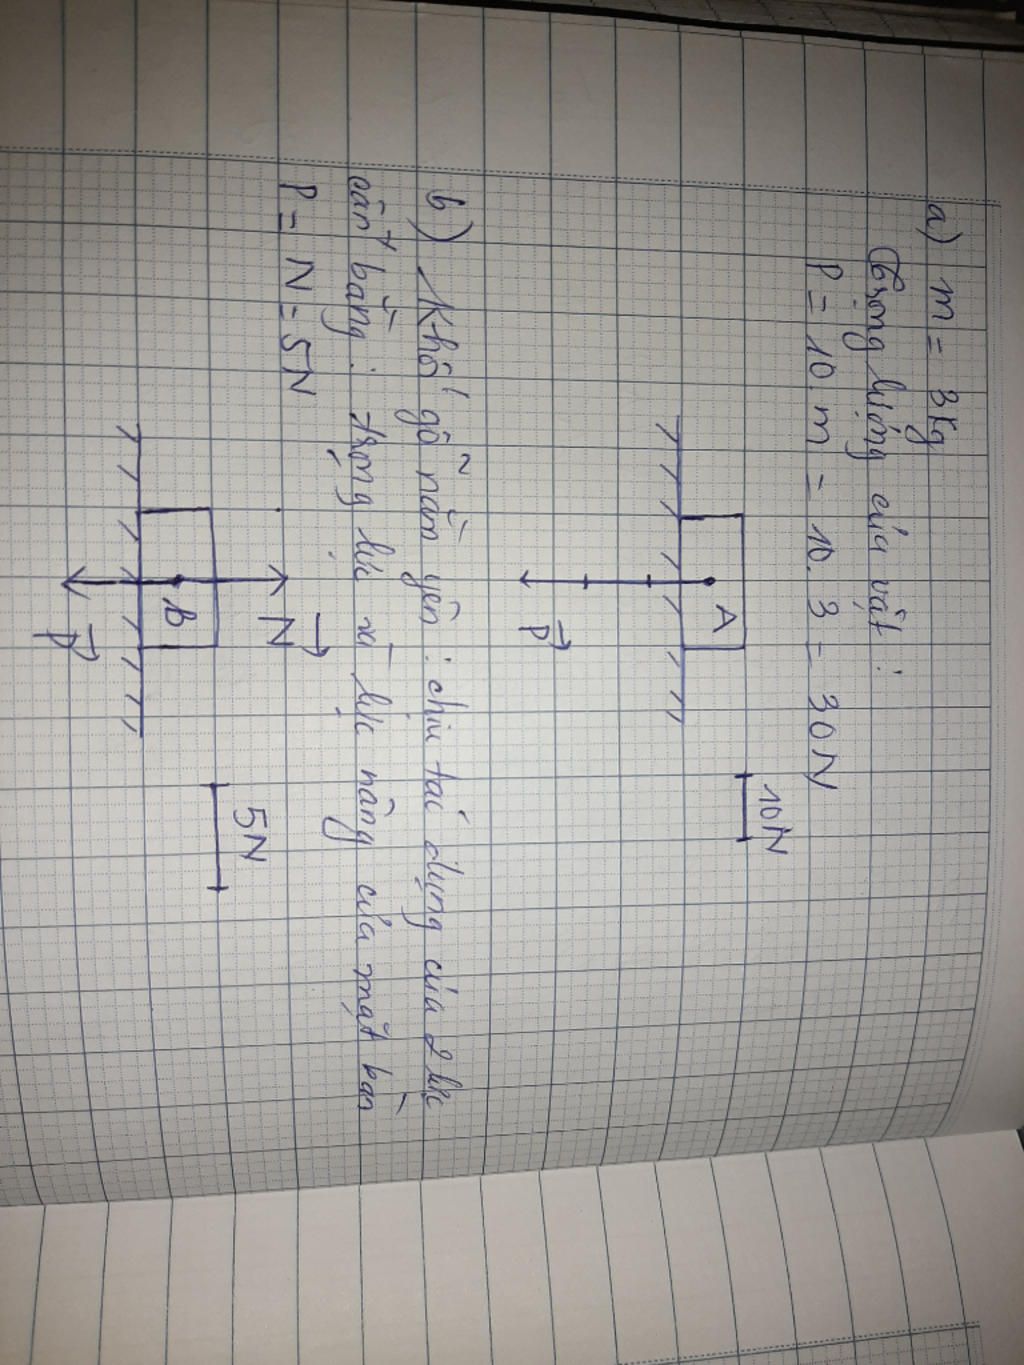 a) m = 3kg
Trọng lượng của vật :
P = 10. m = 10. 3 = 30N
10N
A
P
b) Khối gỗ nằm yên : chịu tác dụng của 2 lực
cân bằng : trọng lực và lực nâng của mặt bàn
P = N = 5N
N
5N
B
P